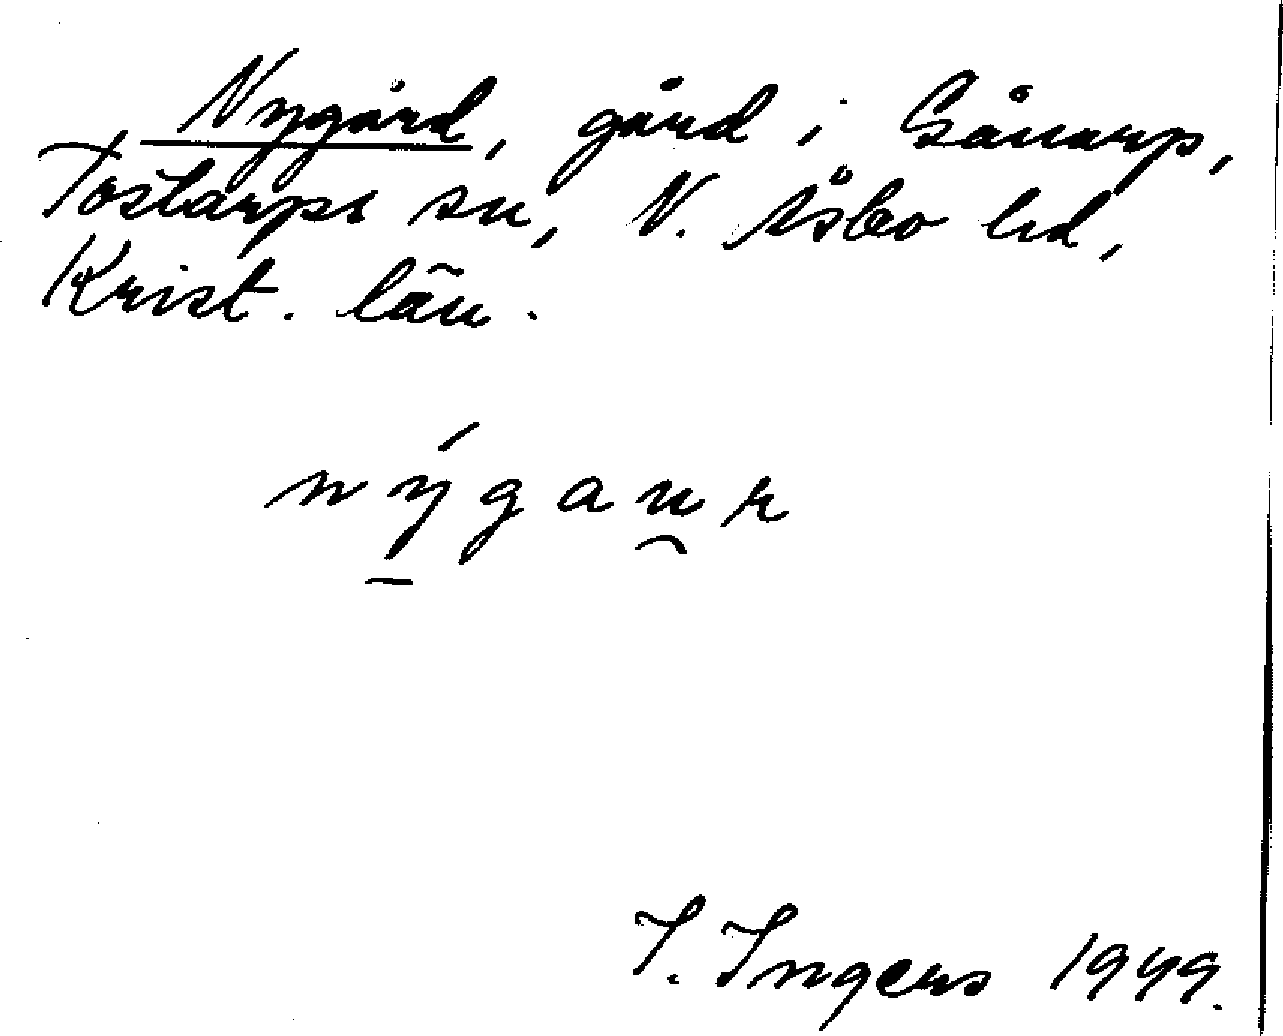 Nygård, gård i Gånarp,
Tåstarps sn, N. Åsbo hd,
Krist. län.
nýgau̯r
I. Ingers 1949.